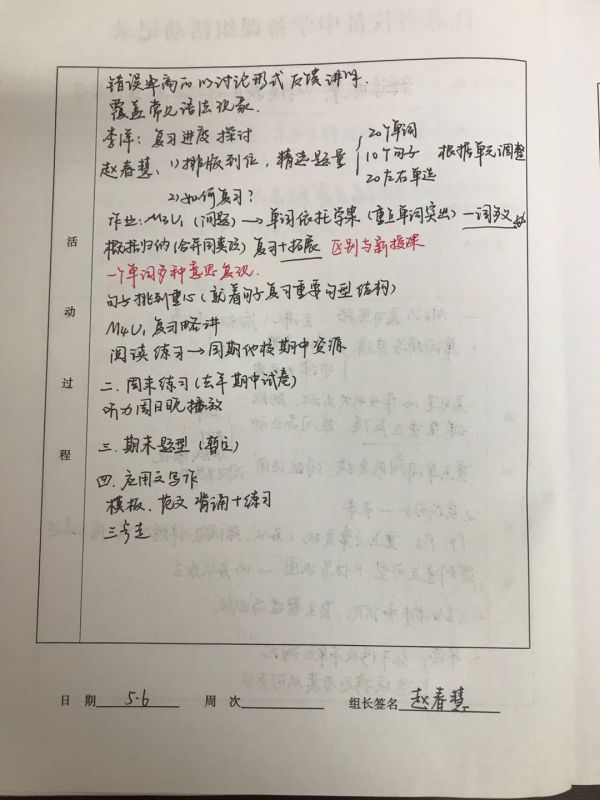 错误率高的以讨论形式反馈讲解.
覆盖常见语法现象.
李洋: 复习进度 探讨
赵春慧、1)排版到位，精选题量 { 20个单词
10个句子 根据单元调整
20左右单选
2)如何复习？
作业: M3U1 (问题) → 单词依托学案 (重点单词突出) 一词多义
概括归纳(合并同类项) 复习+拓展 区别与新授课
一个单词多种意思复现.
句子挑到重心 (就着句子复习重要句型结构)
M4U1 复习略讲
阅读练习 → 同期他校期中资源
二. 周末练习 (去年期中试卷)
听力周日晚播放
三. 期末题型 (暂定)
四. 应用文写作
模板、范文 背诵+练习
活动过程
日 期 5-6 周 次 组长签名 赵春慧